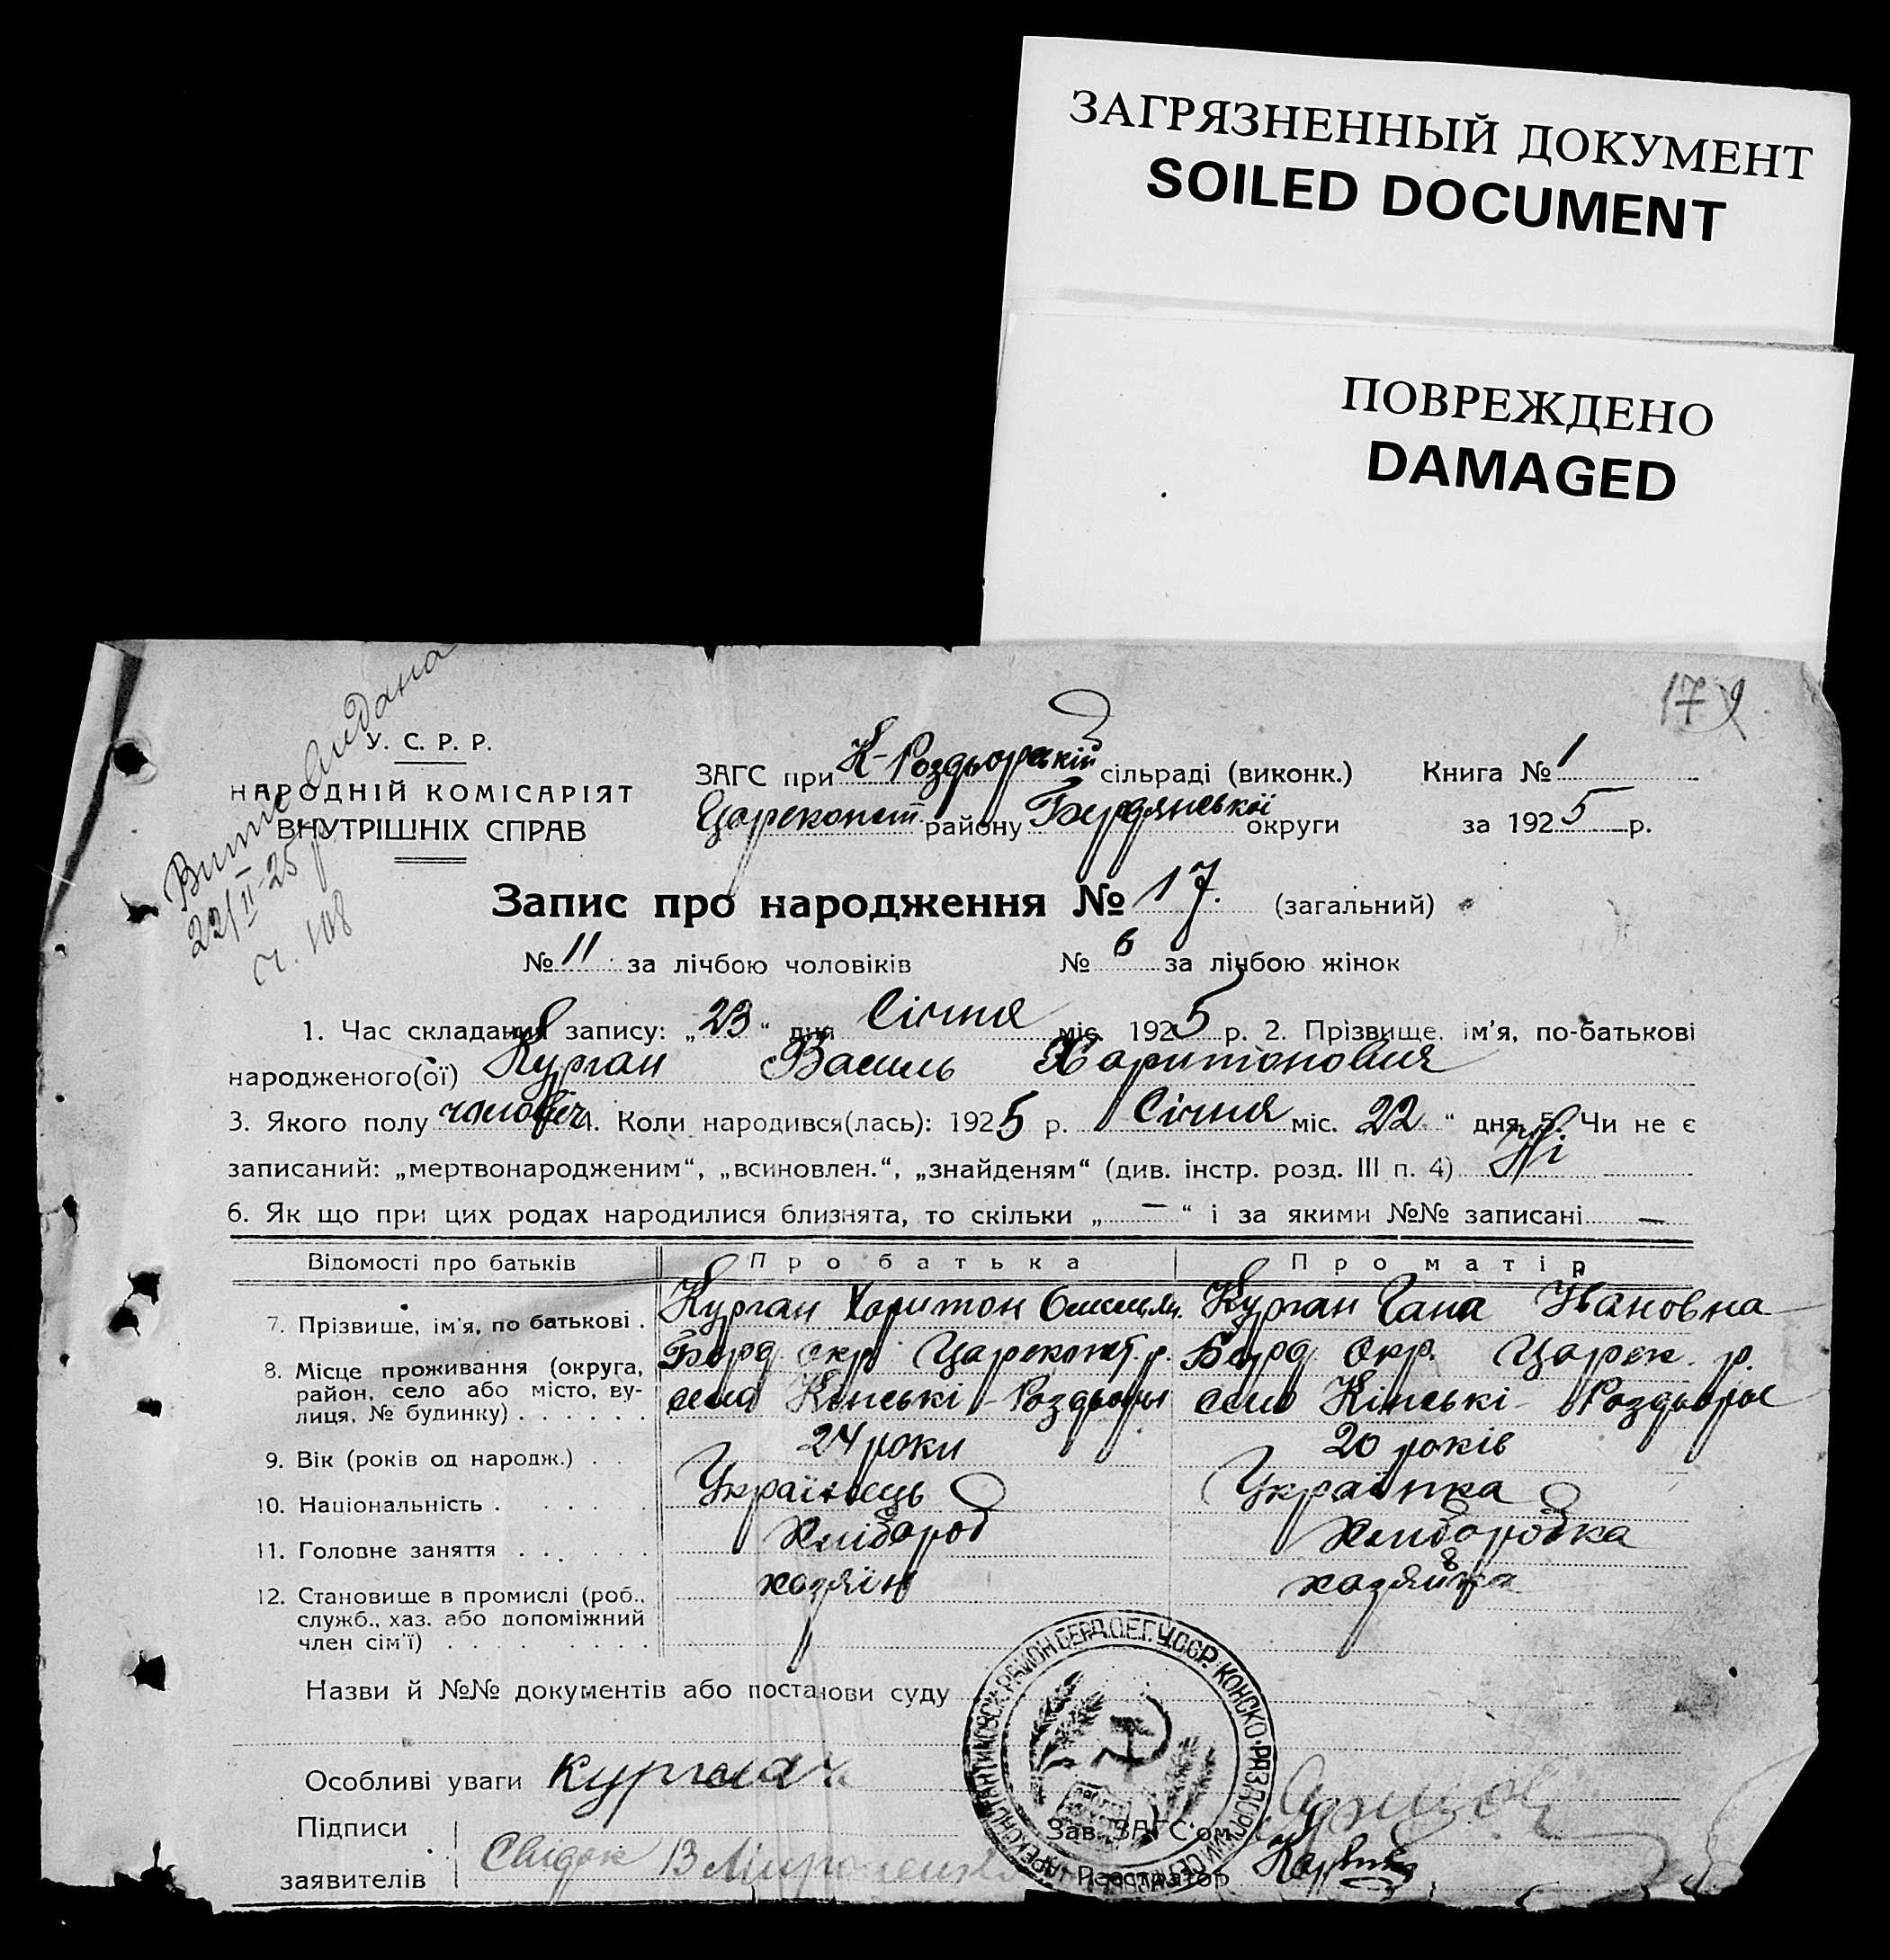 ЗАГРЯЗНЕННЫЙ ДОКУМЕНТ
SOILED DOCUMENT
ПОВРЕЖДЕНО
DAMAGED
179
Витяг видано
22/II-25 р
ч. 108
У. С. Р. Р.
НАРОДНІЙ КОМІСАРІЯТ
ВНУТРІШНІХ СПРАВ
ЗАГС при К-Роздьорській сільраді (виконк.) Книга № 1
Цареконст району Бердянської округи за 1925 р.
Запис про народження № 17. (загальний)
№ 11 за лічбою чоловіків № 6 за лічбою жінок
1. Час складання запису: „23“ дня Січня міс. 1925 р. 2. Прізвище, ім'я, по-батькові
народженого(ої) Курган Василь Харитонович
3. Якого полу чоловіч 4. Коли народився(лась): 1925 р. Січня міс. 22 “ дня 5. Чи не є
записаний: „мертвонародженим“, „всиновлен.“, „знайденям“ (див. інстр. розд. III п. 4) Ні
6. Як що при цих родах народилися близнята, то скільки „ — “ і за якими №№ записані —
Відомості про батьків Про батька Про матір
7. Прізвище, ім'я, по батькові . Курган Харитон Курган Гана Івановна
8. Місце проживання (округа, район, село або місто, вулиця, № будинку) . . . . . .
Берд окр Цареконст. р. Берд Окр. Царек. р.
село Кінські-Роздьори село Кінські-Роздьоры
9. Вік (років од народж.) . . 24 роки 20 років
10. Національність . . . . . Українець Українка
11. Головне заняття . . . . . . Хлібороб Хліборобка
12. Становище в промислі (роб., служб., хаз. або допоміжний член сім'ї) . . . . . . . хазяїн хазяйка
Назви й №№ документів або постанови суду
Особливі уваги Курган
Підписи
заявителів Свідок В Мироненко
Зав. ЗАГС'ом
Реєстратор
ЦАРЕКОНСТАНТИНОВСК. РАЙОН. БЕРД. О. Е. Г. У.С.С.Р. КОНСКО-РАЗДОРСКИЙ